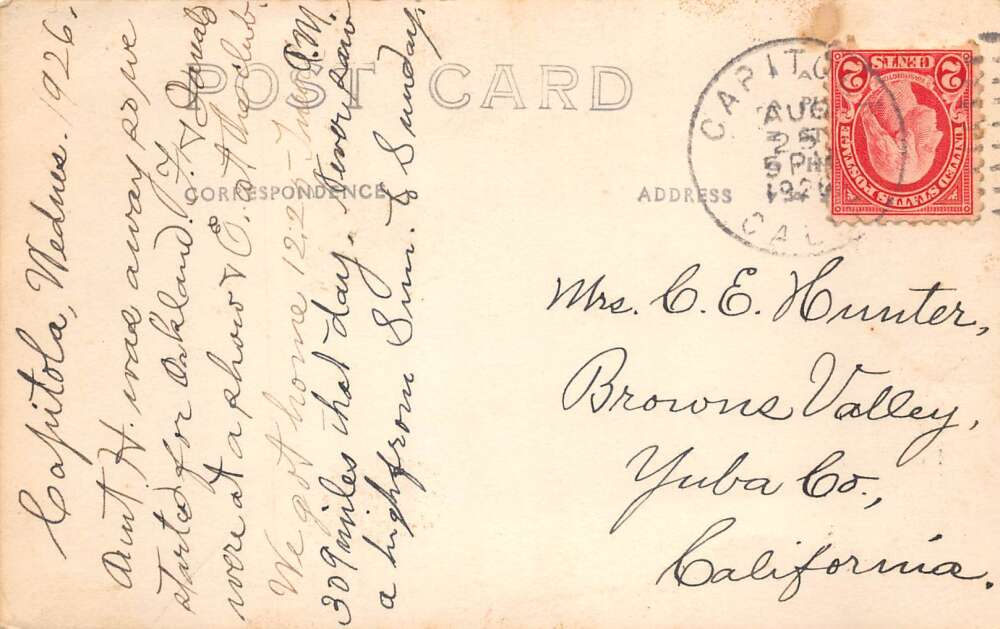 POST CARD
CORRESPONDENCE
ADDRESS
CAPITOLA
AUG
25
5 PM
1926
CAL
UNITED STATES POSTAGE
2 CENTS 2
Mrs. C. E. Hunter,
Browns Valley,
Yuba Co.,
California.
Capitola, Wednes. 1926.
Aunt H. was away so we
started for Oakland. F. &
were at a show & C. at the club.
We got home 12:25 A.M.
309 miles that day. Never saw
a high from Sun. to Sunday.